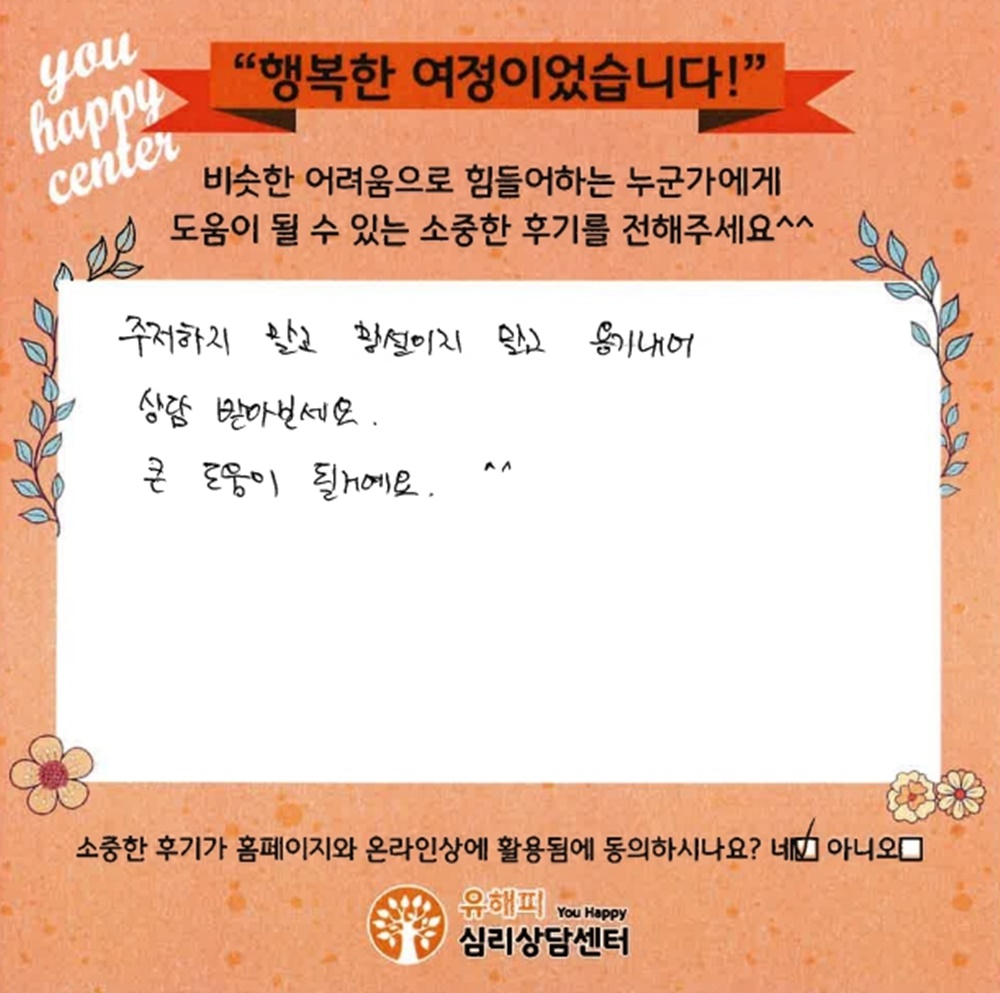 you
happy
center
“행복한 여정이었습니다!”
비슷한 어려움으로 힘들어하는 누군가에게
도움이 될 수 있는 소중한 후기를 전해주세요^^
주저하지 말고 망설이지 말고 용기내어
상담 받아보세요.
큰 도움이 될거예요. ^^
소중한 후기가 홈페이지와 온라인상에 활용됨에 동의하시나요? 네☑ 아니오☐
유해피 You Happy
심리상담센터